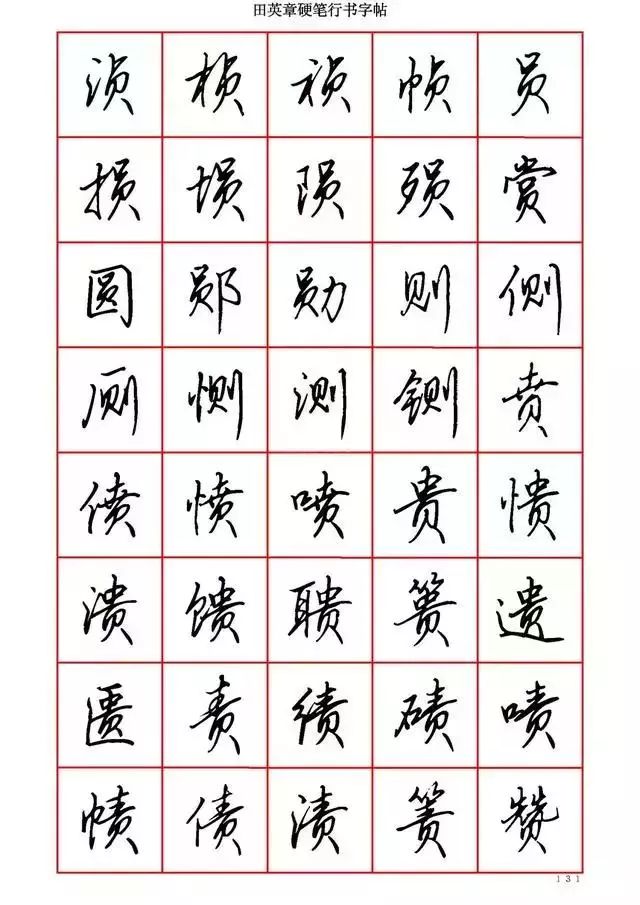 田英章硬笔行书字帖
浈 桢 祯 帧 员
损 埙 陨 殒 赏
圆 郧 勋 则 侧
厕 恻 测 铡 贲
偾 愤 喷 贵 愦
溃 馈 聩 篑 遗
匮 责 绩 碛 啧
帻 债 渍 箦 赞
131